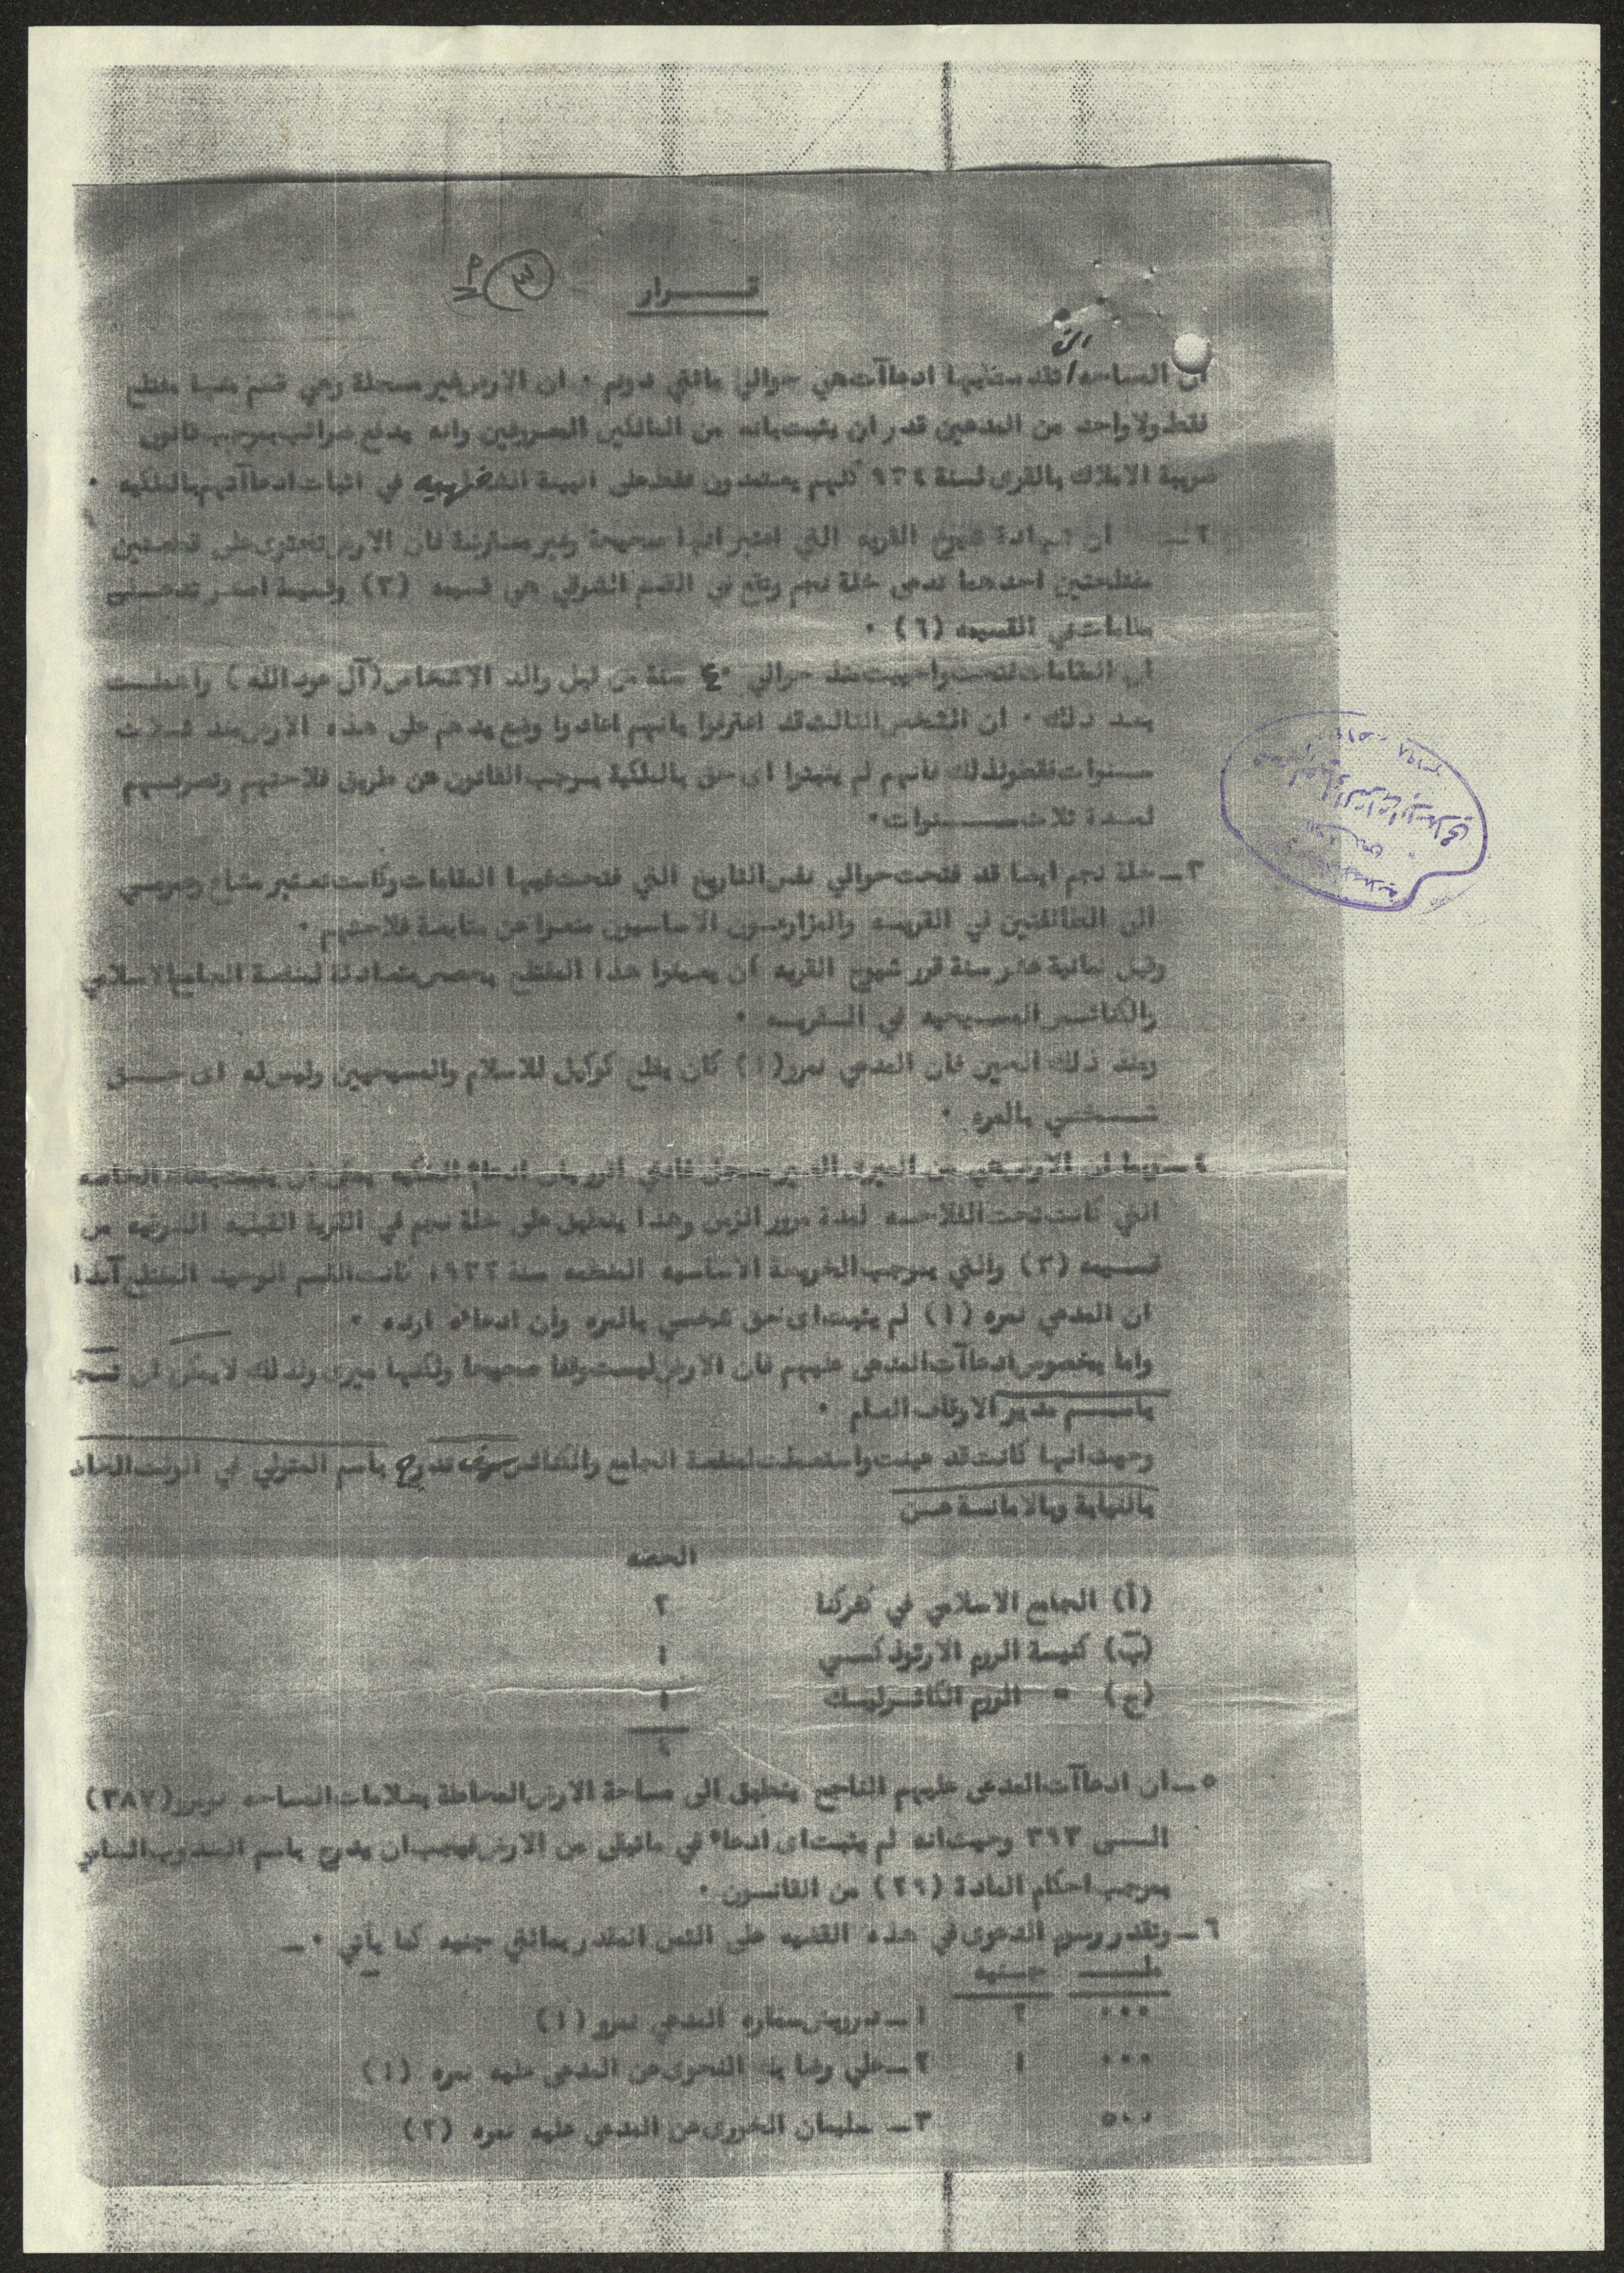 قـــرار
٣
ان المساحه / التي تقدمت فيها ادعاآت هي حوالي مائتي دونم ٠ ان الارض غير مسجلة وهي قسم منها مفتلح
فقط ولا واحد من المدعين قدر ان يثبت بانه من المالكين المعروفين وانه يدفع ضرائب بموجب قانون
ضريبة الاملاك بالقرى لسنة ٩٣٤ كلهم يعتمدون فقط على البينة الشفهيه في اثبات ادعاآتهم بالملكيه ٠
٢ـ ان شهادة شيوخ القريه التي اعتبر انها صحيحة وغير مغرضة فان الارض تحتوى على قطعتين
مفتلحتين احدهما تدعى خلة نجم وتقع في القسم الشرقي من قسيمه (٣) وقسيمة اصغر تدعى
مقامات في القسيمه (٦) ٠
ان المقامات فتحت واحييت منذ حوالي ٤٠ سنة من قبل والد الاشخاص (آل عودالله) واهملت
بعد ذلك ٠ ان الشخص الثالث قد اعترفوا بانهم اعادوا وضع يدهم على هذه الارض منذ ثـلاث
سـنوات فقط ولذلك فانهم لم يثبتوا اى حق بالملكية بموجب القانون عن طريق فلاحتهم وتصرفـهم
لمـدة ثلاث ســنوات ٠
٣ـ خلة نجم ايضا قد فتحت حوالي نفس التاريخ التي فتحت فيها المقامات وكانت تعتبر مشاع وعمومـي
الى الطائفتين في القريـه والمزارعـون الاساسيون منعوا عن متابعة فلاحتهم ٠
وقبل ثمانية عشر سنة قرر شيوخ القريه ان يعينوا هذا المفتلح بحصص متعادلة لمنفعة الجامع الاسلامي
والكنائـس المسـيحيه في الـقريـه ٠
ومنذ ذلك الحين فان المدعي نمرو (١) كان يفلح كوكيل للاسلام والمسيحيين وليس له اى حــق
شــخصي بالمره ٠
٤ـ وبما ان الارض هي من الميرى الغير مسجل فانني اقرر بان ادعاء الملكيه يمكن ان يثبت الحاصه
التي كانت تحت الفلاحـه لمدة مرور الزمن وهذا ينطبق على خلة نجم في القرية القبليه الشرقيه من
قسـيمه (٣) والتي بموجب الخريطة الاساسيه المنظمه سنة ١٩٣٢ كانت القسم الوحيد المفتلح آنذا
ان المدعي نمره (١) لم يثبت اى حق شخصي بالمره وان ادعائه ارده ٠
واما بخصوص ادعاآت المدعى عليهم فان الارض ليست وقفا صحيحا ولكنها ميرى ولذلك لا يمكن ان تسجـ
باســم مدير الاوقاف العـام ٠
وحيث انها كانت قد عينت واستعملت لمنفعة الجامع والكنائس سوف تدرج باسم المتولي في الوقت الحاد
بالنيابة وبالامانـة عـن
الحصه
(أ) الجامع الاسلامي في كفركنا ٢
(ب) كنيسة الروم الارثوذكسـي ١
(ج) " الروم الكاثـوليـك ١
٤
٥ـ ان ادعاآت المدعى عليهم الناجح ينطبق الى مساحة الارض المحاطة بعلامات المساحه نومرو (٣٨٧)
الــى ٣٩٣ وحيث انه لم يثبت اى ادعاء في ماتبقى من الارض فيجب ان يدرج باسم المندوب السامي
بموجب احكام المادة (٢٩) من القانـون ٠
٦ـ وتقدر رسوم الدعوى في هذه القضيه على الثمن المقدر بمائتي جنيه كما يأتي ٠ـ
ملـــ جـنيه
٠٠٠ ٢ ١ـ درويش سماره المدعي نمرو (١)
٠٠٠ ١ ٢ـ علي رضا بك النحوى عن المدعى عليه نمره (١)
٥٠٠ ٣ـ سليمان الخورى عن المدعى عليه نمره (٢)